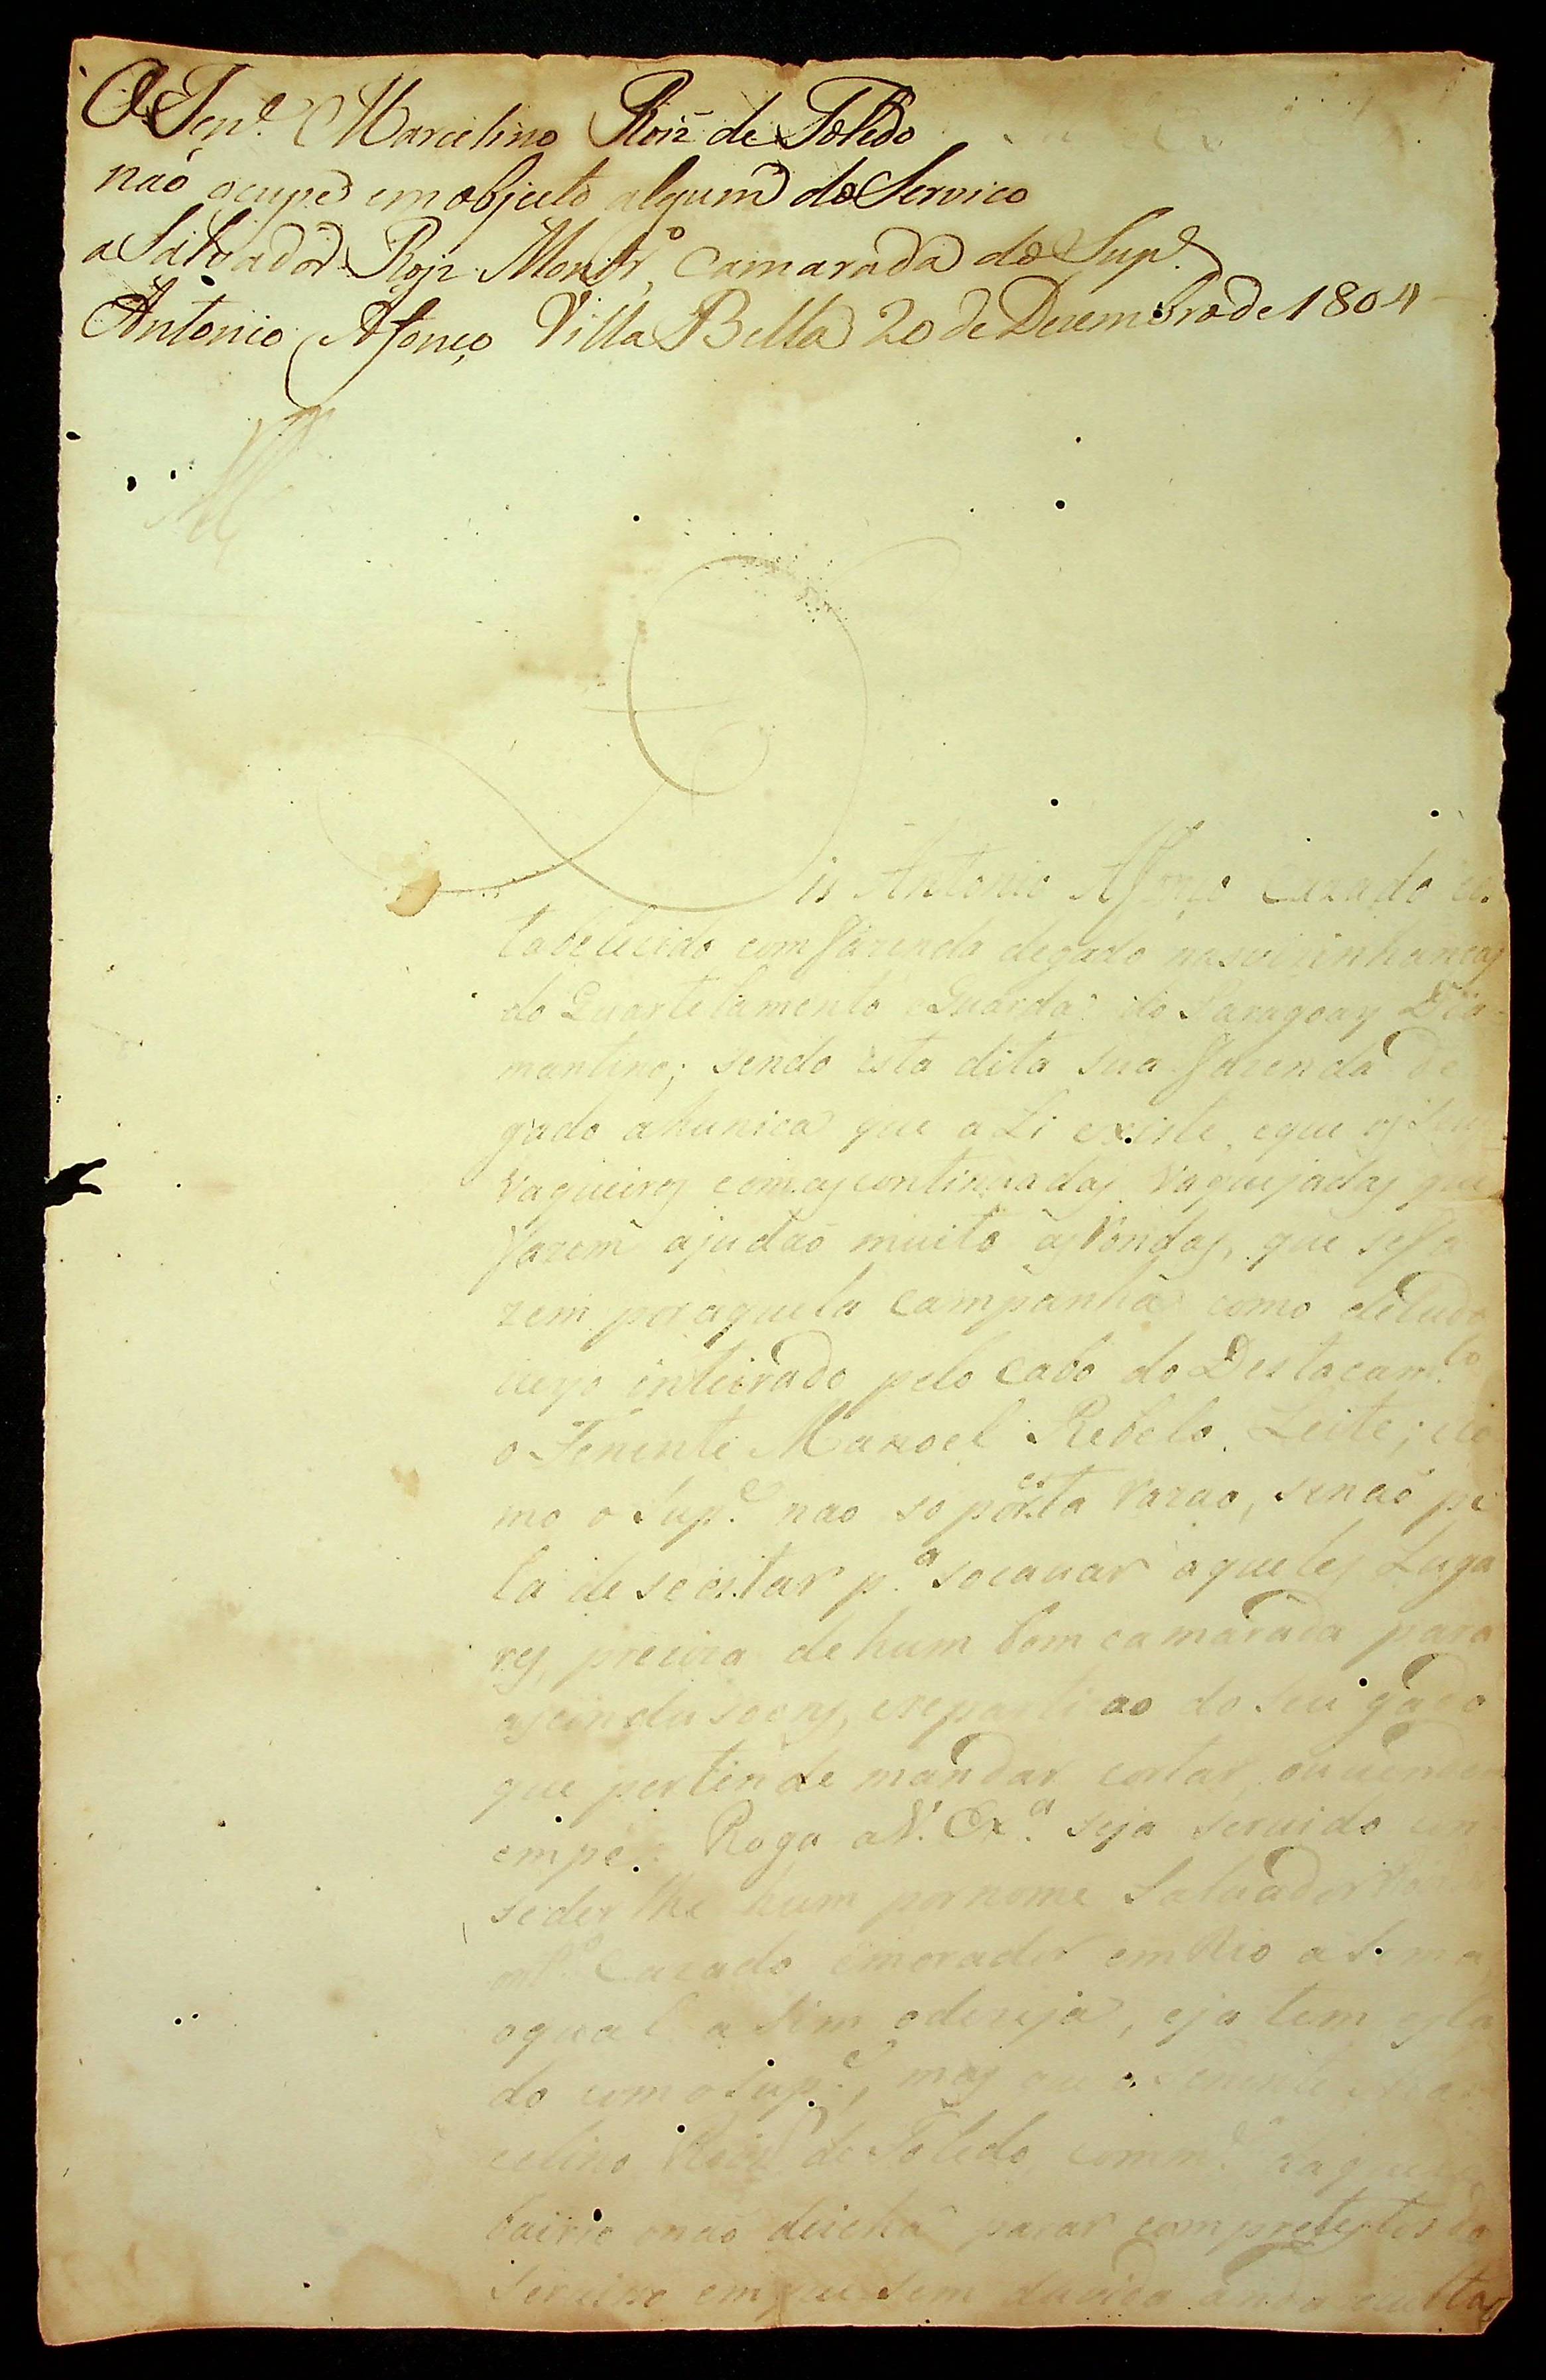 O Ten.e Marcelino Roiz de Toledo
não ocupe em objecto algum do Servico
a Salvador Roiz Montr.o, camarada do Sup.e
Antonio Afonço Villa Bella 20 de Dezembro de 1804
Dis Antonio Afonço Cazado es
tabelecido com fazenda de gado nas vizinhancas
do Quartelamento e Guarda do Paragoay Dia
mantino; sendo esta dita sua fazenda de
gado a hunica que a Li existe, e que os seus
vaqueiros com as continuadas vaquejadas que
fazem ajudão muito as Rondas, que se fa
zem por aquela campanha como de tudo
inteirado pelo Cabo do Destacam.to
o Tenente Manoel Rebelo Leite; e co
mo o Sup.e nao so por esta razao, senão pe
la de seeitar p.a socavar aqueles Luga
res, preciza de hum bom camarada para
as condusoens, e repartiao do seu gado
que pertende mandar cortar ou vender
em pe. Roga a V. Ex.a seja servido con
seder lhe hum por nome Salvador
Cazado e morador em Rio a Sima,
o qual a sim o dezeja, e ja tem esta
do com o Sup.e, mas que o Tenente Mar
celino Roiz de Toledo, Comm.e daquele
bairro o não deicha parar com pretestos do
servisso em que sem duvida anda